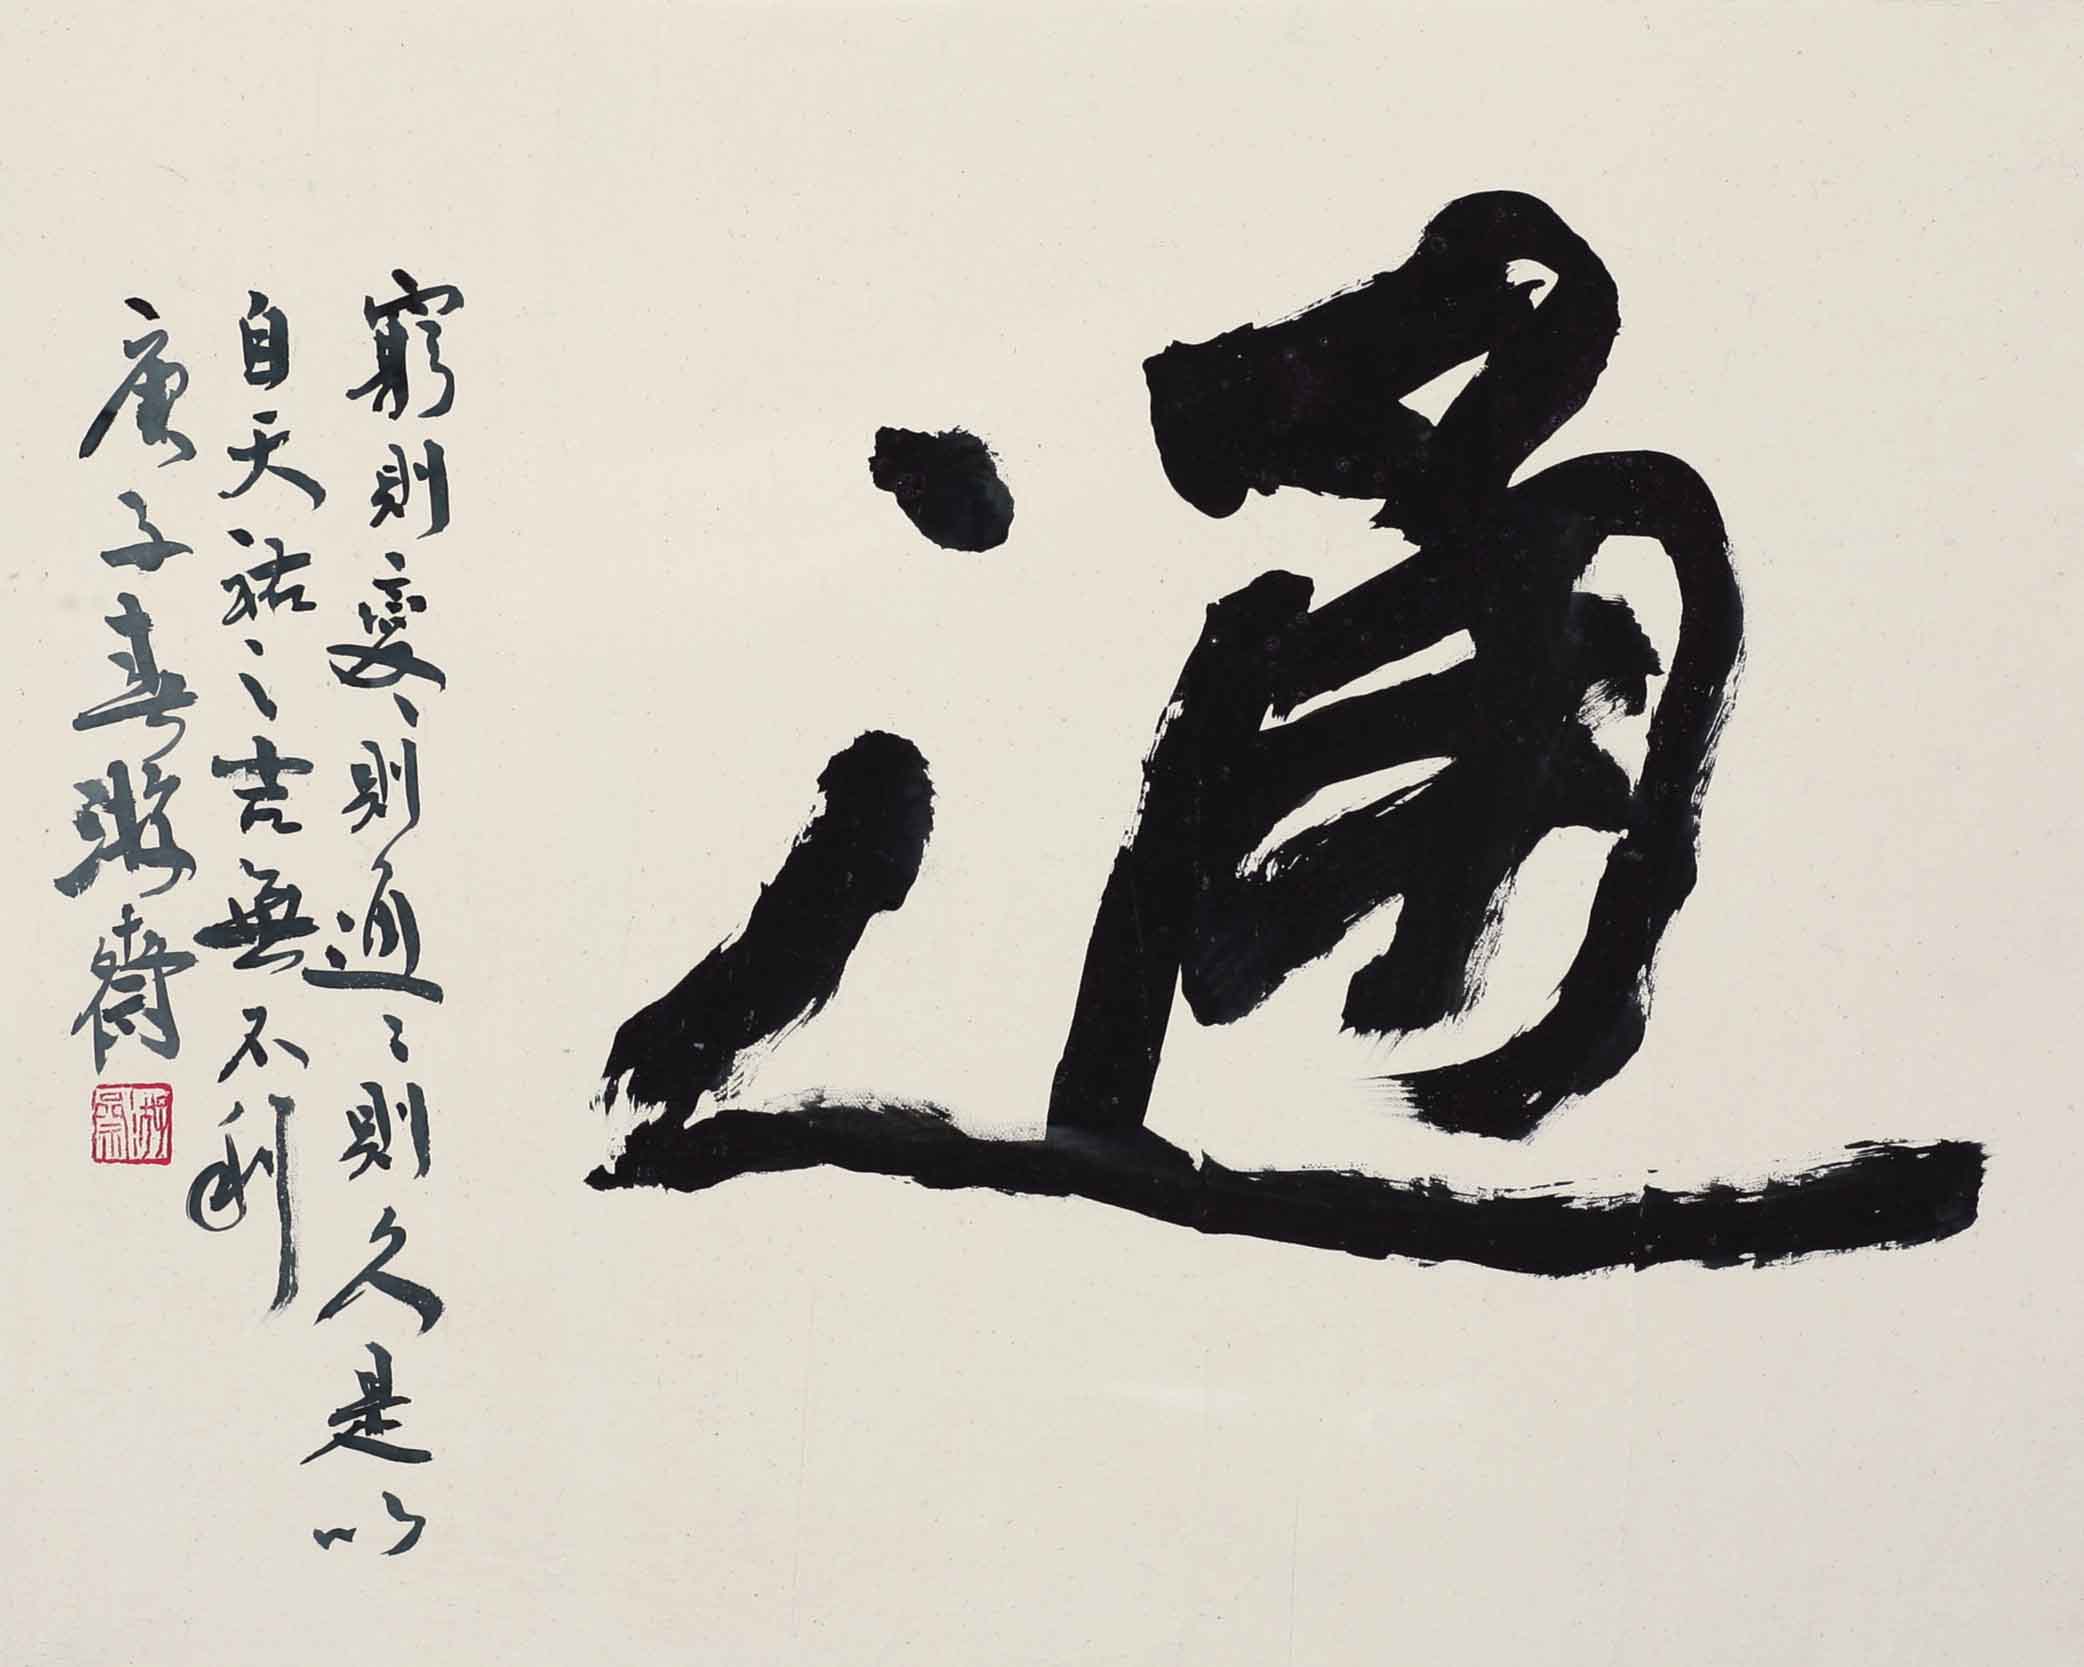 通
窮則變〻則通〻則久是以
自天祐之吉無不利
庚子春游